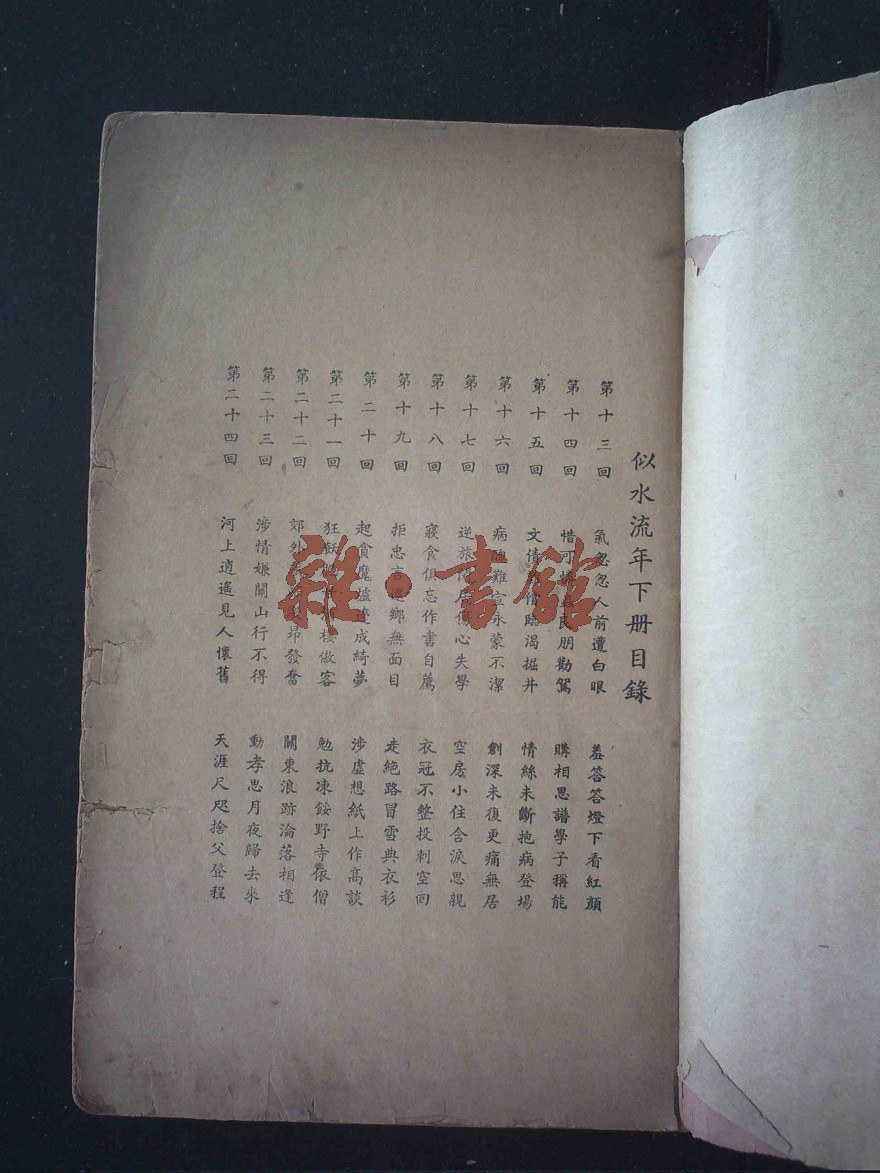 似水流年下册目錄
第十三回 氣忽忽人前遭白眼 羞答答燈下看紅顏
第十四回 惜可朋勸駕 購相思譜學子稱能
第十五回 文債償臨渴掘井 情絲未斷抱病登場
第十六回 病難宣永蒙不潔 創深未復更痛無居
第十七回 逆旅居傷心失學 空房小住含淚思親
第十八回 寢食俱忘作書自薦 衣冠不整投刺空回
第十九回 拒忠言還鄉無面目 走絕路冒雪典衣衫
第二十回 起貪魔成綺夢 涉虛想紙上作高談
第二十一回 狂樓傲客 勉抗凍餒野寺依僧
第二十二回 郊外昂發奮 關東浪跡淪落相逢
第二十三回 涉情嫌關山行不得 動孝思月夜歸去來
第二十四回 河上逍遙見人懷舊 天涯尺咫捨父登程
雜·書館